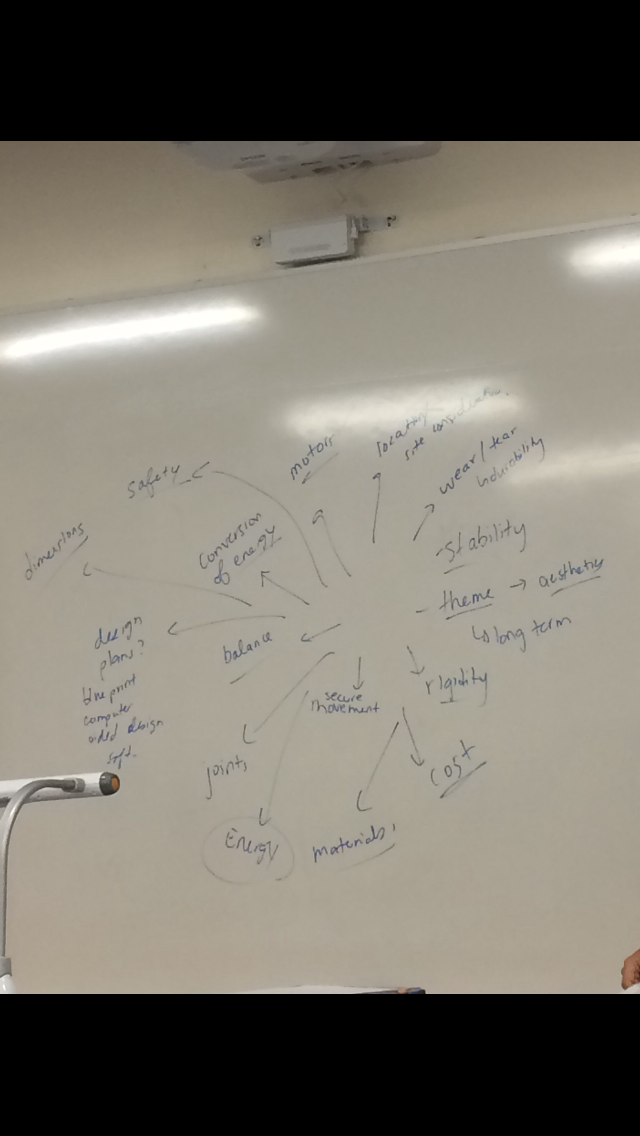 motors
location/
site consideration.
safety
wear/tear
↳ durability
dimensions
conversion
of energy
- stability
- theme → aesthetics
↳ long term
design
plans?
blueprint
computer
aided design
soft.
balance
secure
movement
rigidity
joints
cost
Energy
materials